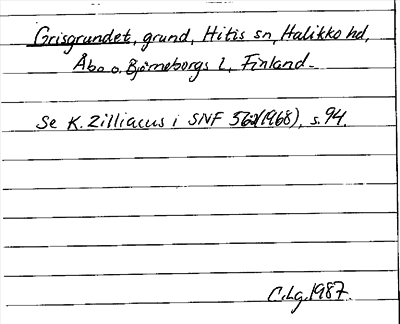 Grisgrundet, grund, Hitis sn, Halikko hd,
Åbo o. Björneborgs l, Finland.
Se K. Zilliacus i SNF 56 (1968), s. 94.
C.Lg. 1987.